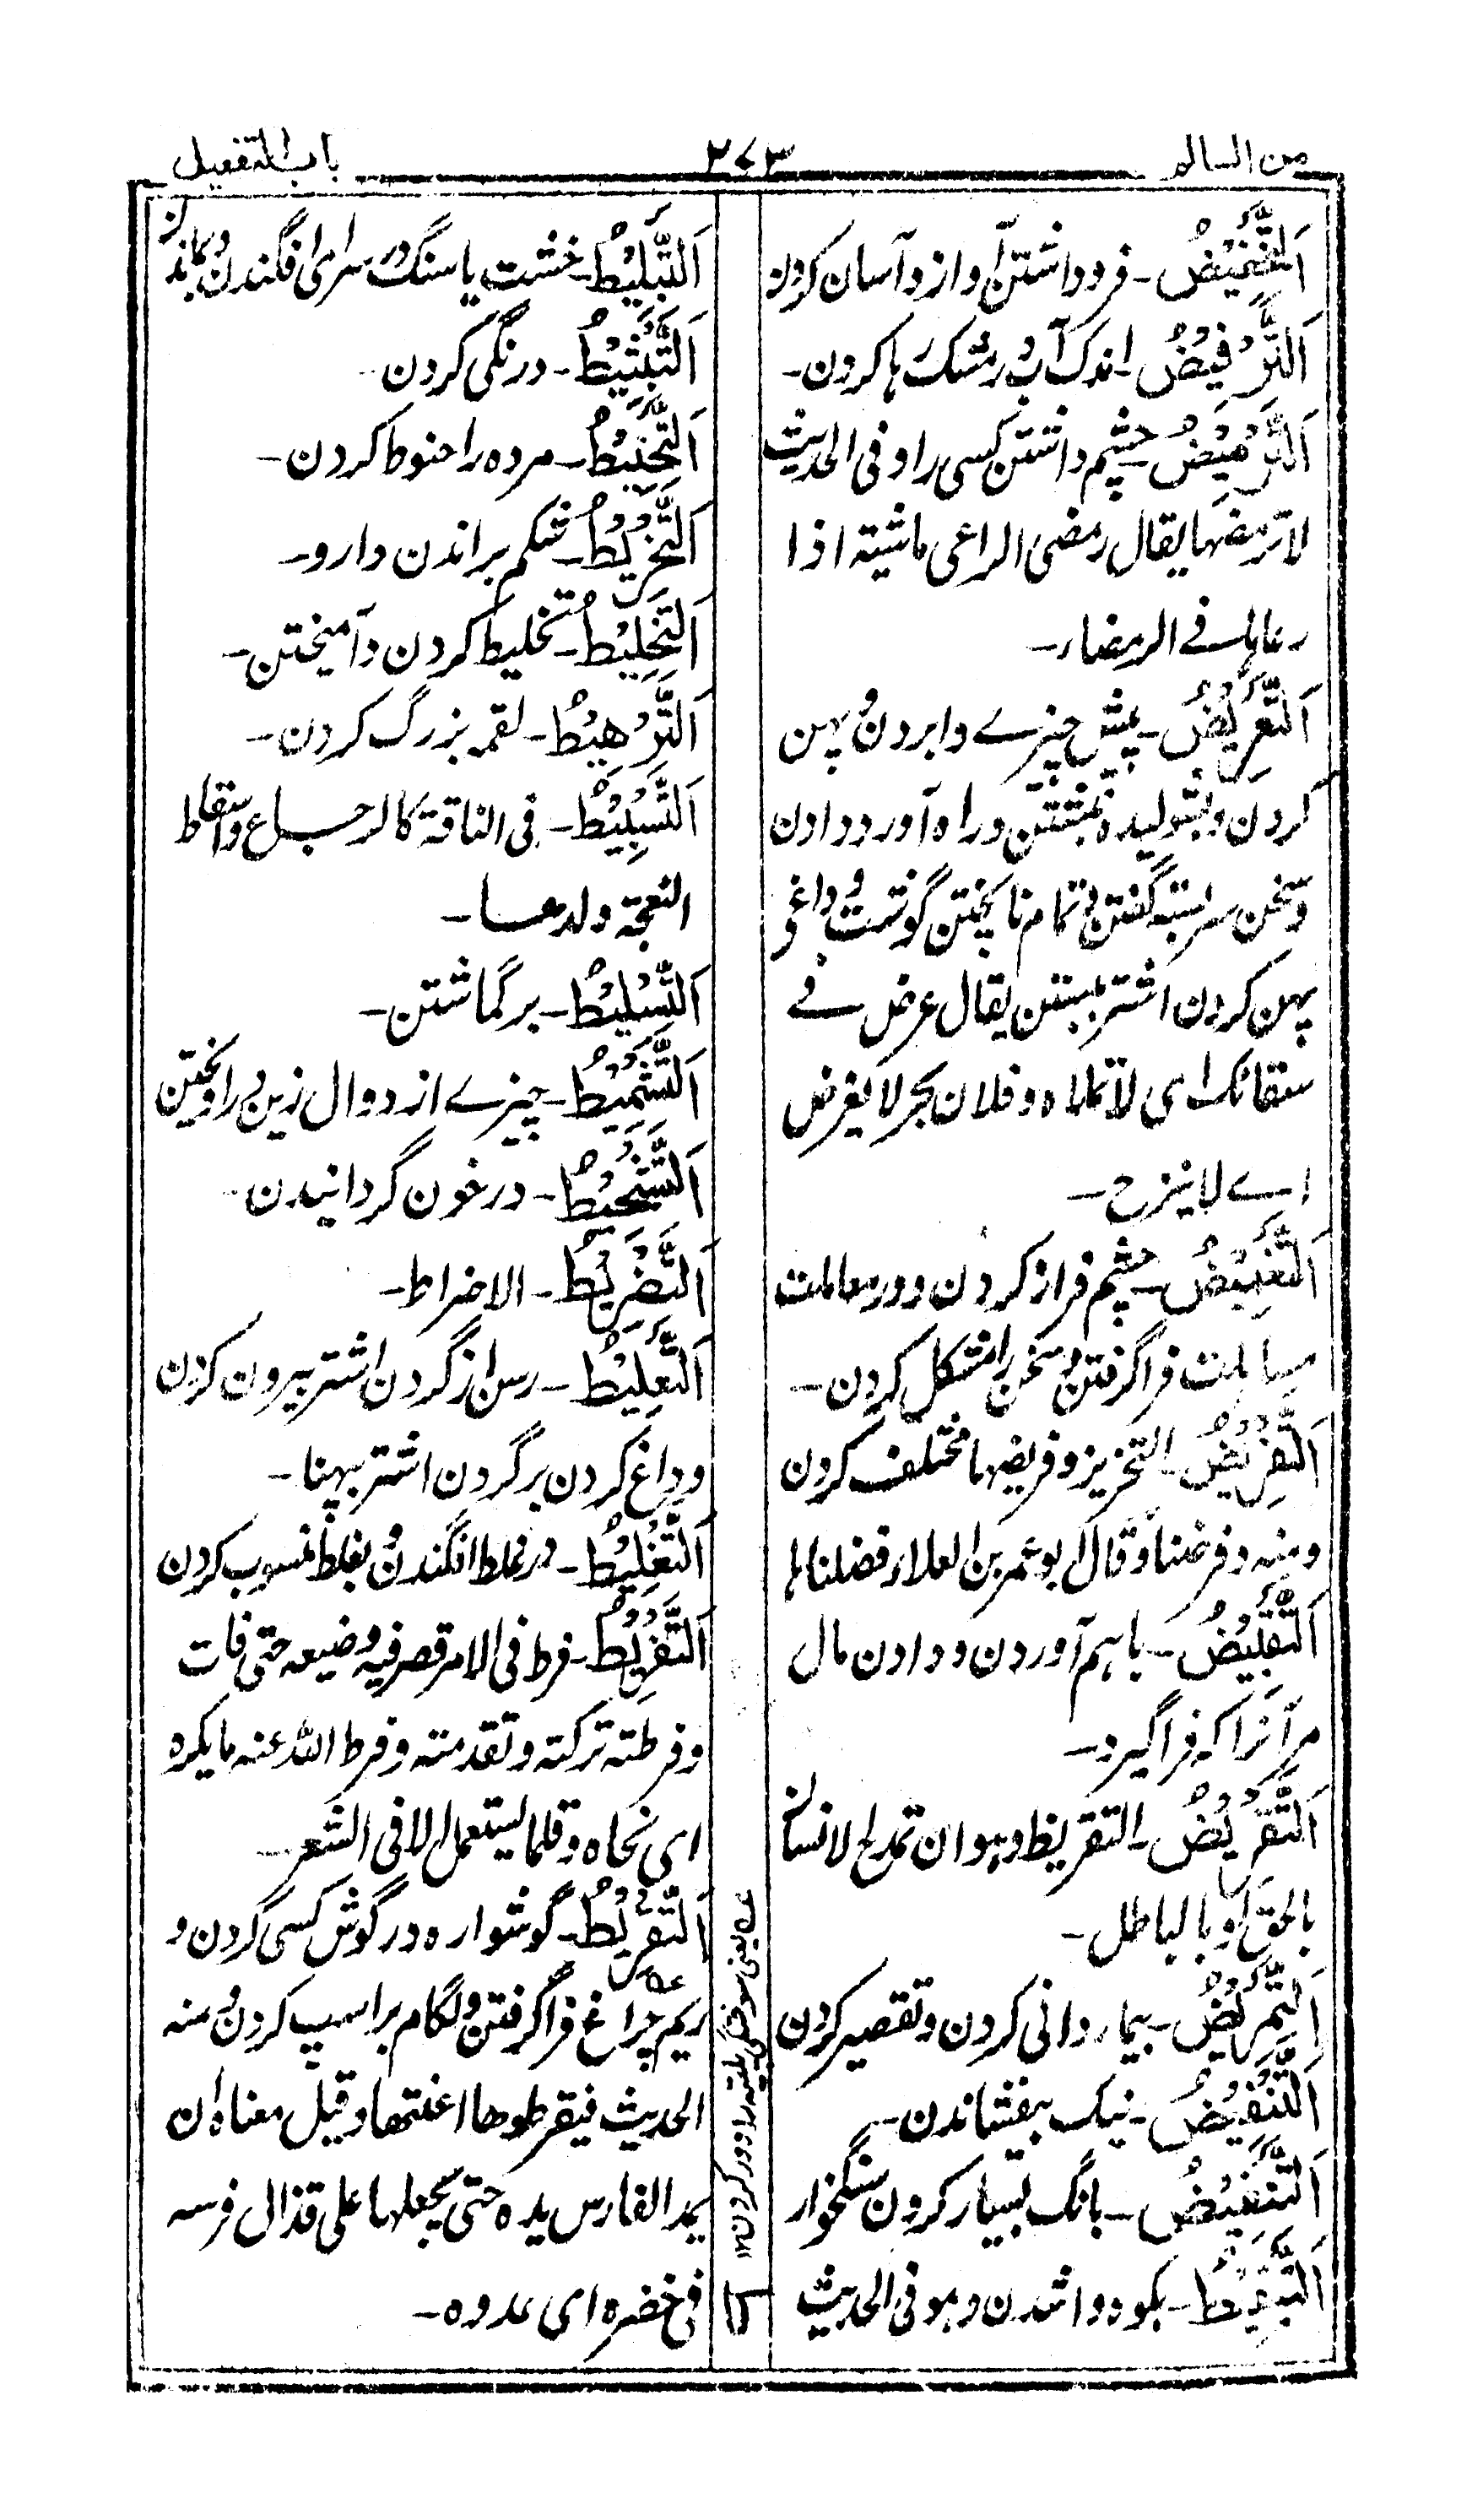 من السالم
۲۷۳
باب التفعیل
اَلتَّخْفِیْضُ۔ فرو داشتن آواز و آسان کردن
اَلتَّرْفِیْضُ۔ اندک آب در مشک رہا کردن۔
اَلتَّرْمِیْضُ۔ چشم داشتن کسی را و فی الحدیث
لا ترمضہا یقال رمض الراعی ماشیتہ اذا
رعاہا فے الرمضاء۔
اَلتَّعْرِیْضُ۔ پیش چیزے وا بردن و پہن
کردن و بشولیدہ نبشتن و راہ آورد دادن
و سخن سربستہ گفتن و تمام ناپختن گوشت و داغی
پہن کردن اشتر ببستن یقال عرض فے
سقائک ای لا تملاہ و فلان بحر لا یغرض
اے لا ینزح۔
اَلتَّغْمِیْضُ۔ چشم فراز کردن و در معاملت
مساہلت فرا گرفتن و سخن را مشکل کردن۔
اَلتَّفْرِیْضُ۔ التحزیز و فریضہا مختلف کردن
و منہ و فرضناہا و قال ابو عمر بن العلاء فصلناہا
اَلتَّقْبِیْضُ۔ باہم آوردن و دادن مال
مر آنرا کہ فرا گیرد۔
اَلتَّقْرِیْضُ۔ التقریظ و ہو ان تمدح الانسان
بالحق او بالباطل۔
اَلتَّمْرِیْضُ۔ بیمار دانی کردن و تقصیر کردن
اَلتَّنْفِیْضُ۔ نیک بیفشاندن۔
اَلتَّنْقِیْضُ۔ بانگ بسیار کردن سنگخوار
اَلتَّبْقِیْطُ۔ بکوہ وا شدن و ہو فی الحدیث
اَلتَّبْلِیْطُ۔ خشت یا سنگ در سرای افگندن و بماندن
اَلتَّثْبِیْطُ۔ درنگی کردن۔
اَلتَّحْنِیْطُ۔ مردہ را حنوط کردن۔
اَلتَّخْرِیْطُ۔ شکم براندن دارو۔
اَلتَّخْلِیْطُ۔ تخلیط کردن و آمیختن۔
اَلتَّرْهِیْطُ۔ لقمہ بزرگ کردن۔
اَلتَّسْبِیْطُ۔ فی الناقۃ کالرجاع و اسقاط
النعجۃ ولدھا۔
اَلتَّسْلِیْطُ۔ برگماشتن۔
اَلتَّسْمِیْطُ۔ چیزے از دوال زین در آویختن
اَلتَّشْحِیْطُ۔ در خون گردانیدن۔
اَلتَّضْرِیْطُ۔ الاضراط۔
اَلتَّعْلِیْطُ۔ رسن از گردن اشتر بیرون کردن
و داغ کردن بر گردن اشتر بپہنا۔
اَلتَّغْلِیْطُ۔ در غلط افگندن و بغلط منسوب کردن
اَلتَّفْرِیْطُ۔ فرط فی الامر قصر فیہ و ضیعہ حتی فات
و فرطتہ ترکتہ و تقدمتہ و فرط اللہ عنہ ما یکرہ
ای نحاہ و قلما یستعمل الا فی الشعر۔
اَلتَّقْرِیْطُ۔ گوشوارہ در گوش کسی کردن و
ریم چراغ فرا گرفتن و لگام بر اسپ کردن و منہ
الحدیث فیقرطوھا اعنتھا و قیل معناہ ان
یمد الفارس یدہ حتی یجعلھا علی قذال فرسہ
فی حضرہ ای عدوہ۔
عہ یعنی سوختگی پلیتہ را دور کردن ۱۲